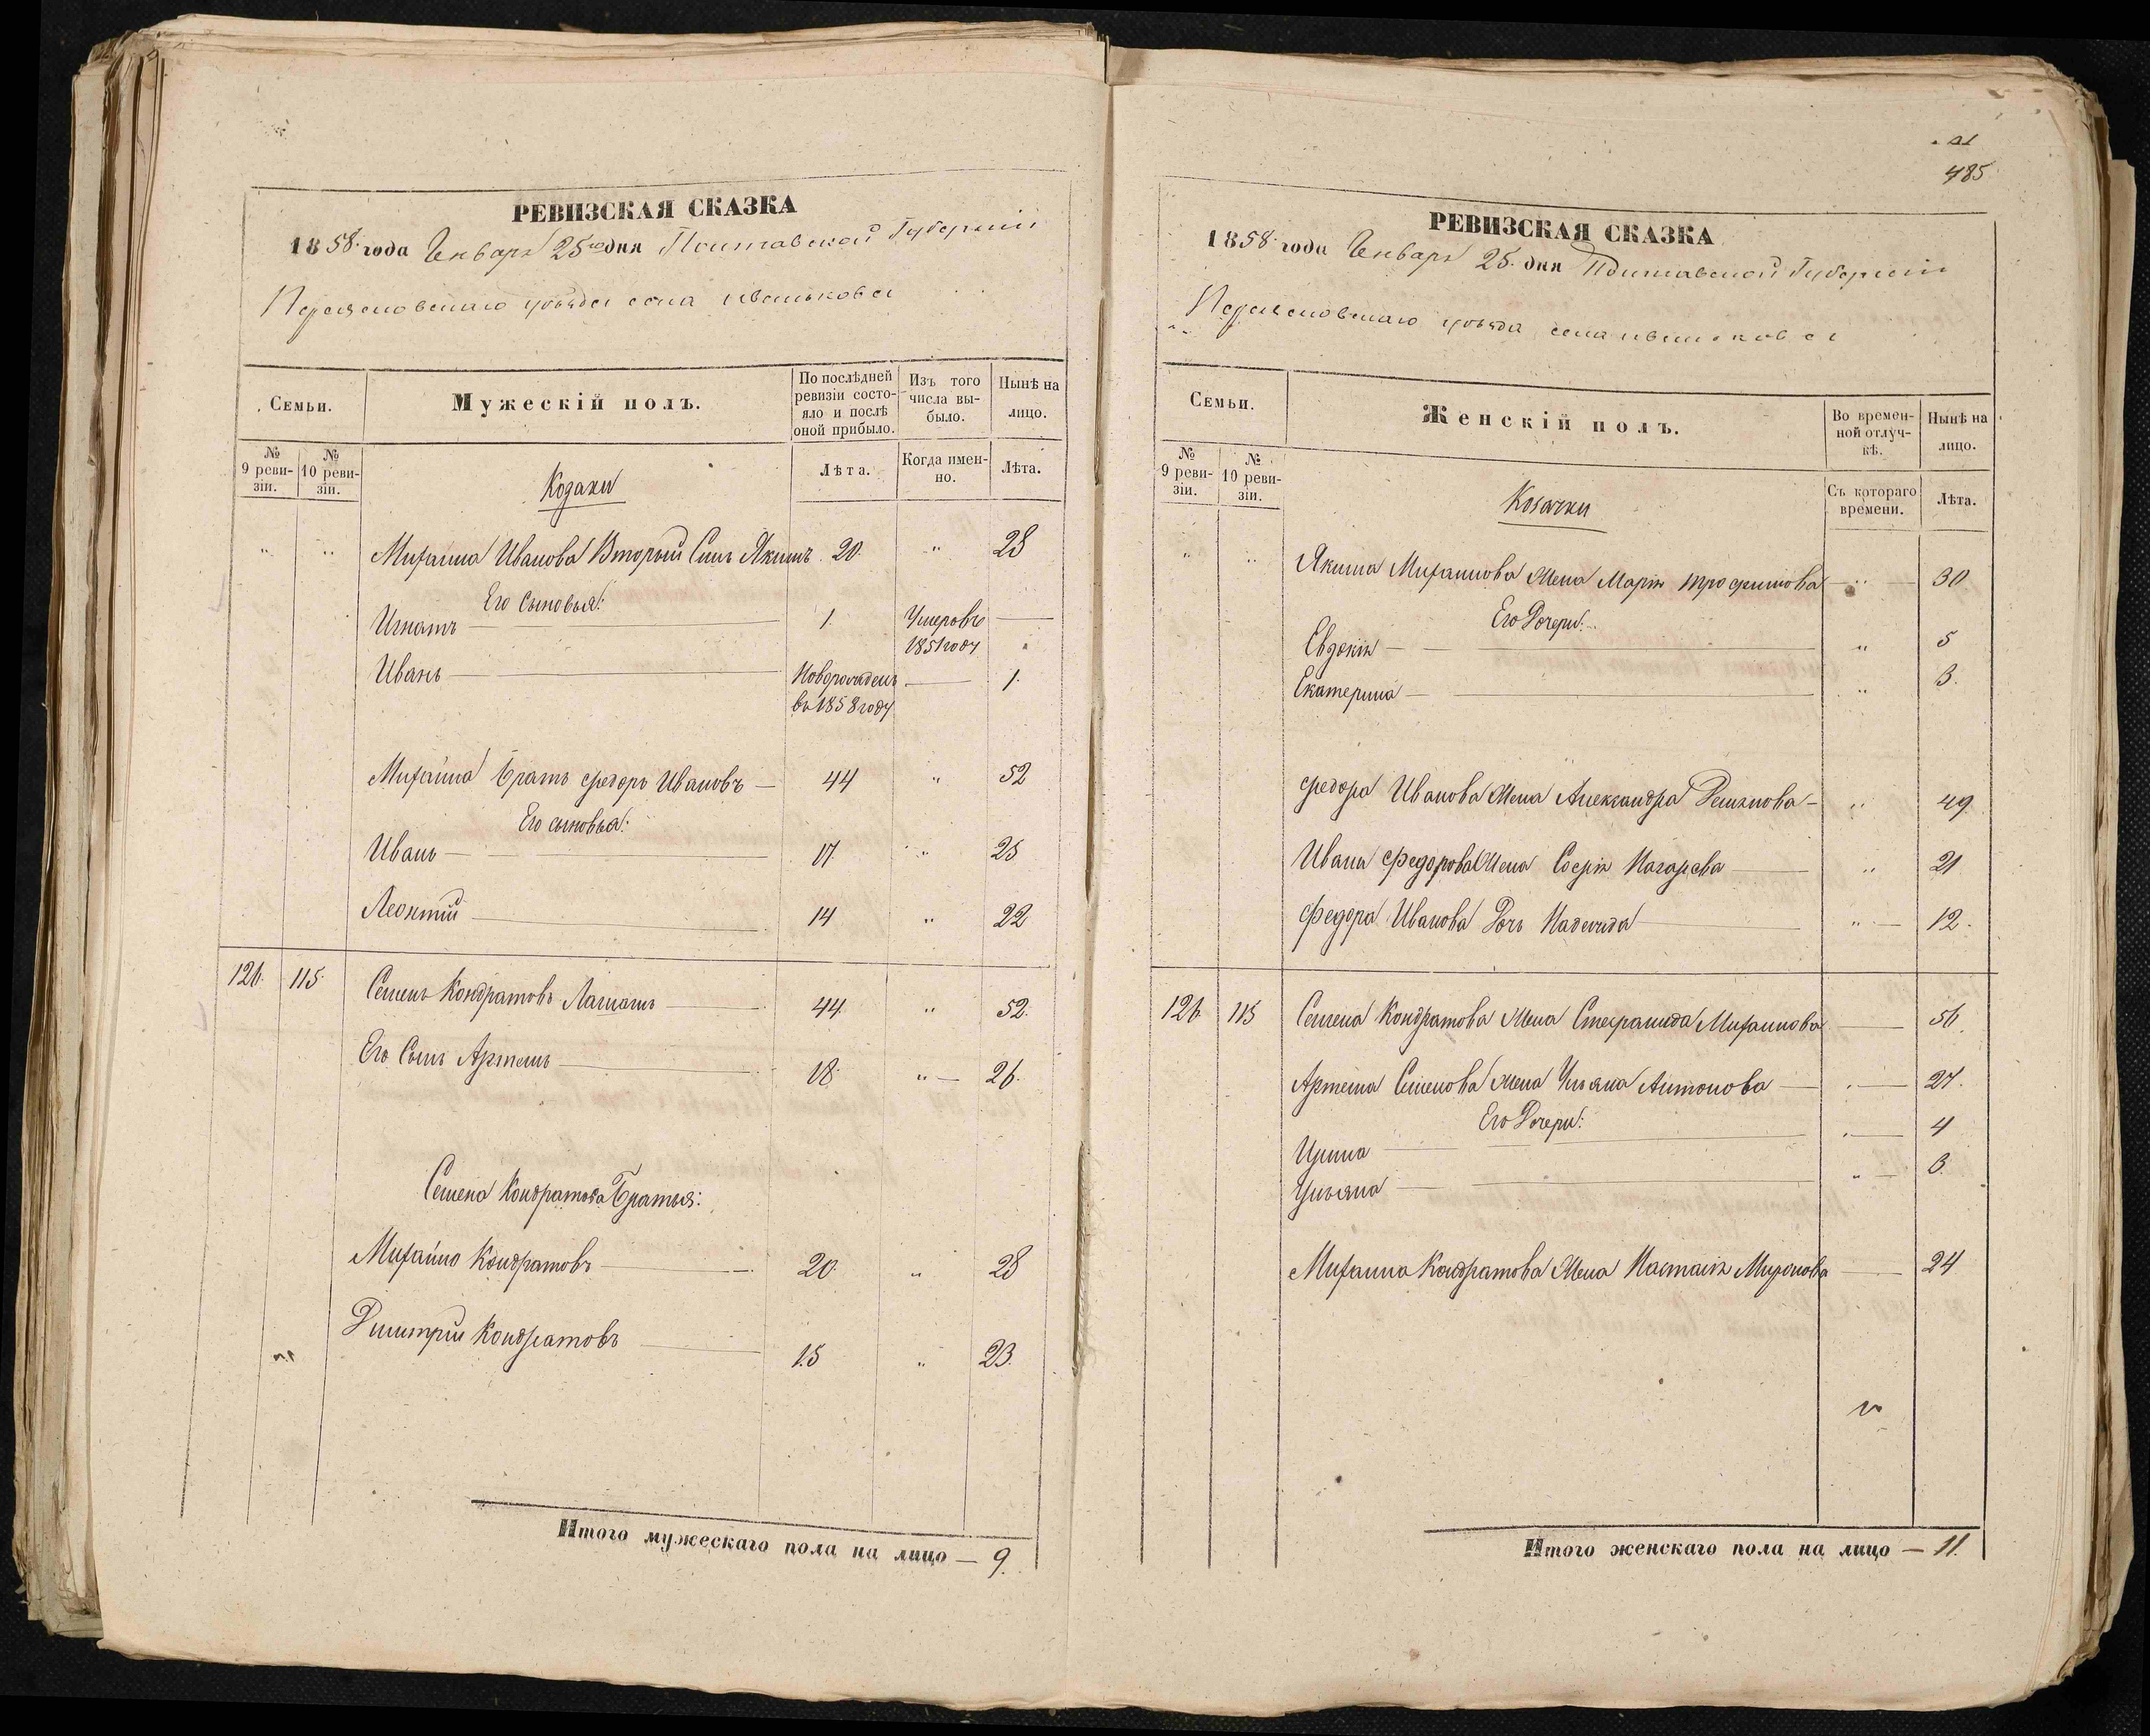 РЕВИЗСКАЯ СКАЗКА
1858 года Генваря 25го дня Полтавской Губерніи
Переяславскаго уѣзда села Иванькова
Семьи.
Мужескій полъ.
По послѣдней ревизіи состояло и послѣ оной прибыло.
Изъ того числа выбыло.
Нынѣ на лицо.
№ 9 ревизіи.
№ 10 ревизіи.
Козаки
Лѣта.
Когда именно.
Лѣта.
" " Михаила Иванова Второй Сынъ Якимъ 20. " 28
Его Сыновья:
Игнатъ — 1. Умеръ въ 1851 году "
Иванъ — Новорожденъ въ 1858 году — 1.
Михаила Братъ Федоръ Ивановъ — 44 " 52
Его сыновья:
Иванъ — 17. " 25
Леонтій — 14 " 22
126. 115. Семенъ Кондратовъ — 44. " 52.
Его Сынъ Артемъ — 18. " — 26.
Семена Кондратова Братья:
Михайло Кондратовъ — 20. " 28
Дмитрій Кондратовъ — 15 " 23.
Итого мужескаго пола на лицо — 9.
485
РЕВИЗСКАЯ СКАЗКА
1858 года Генваря 25. дня Полтавской Губерніи
Переяславскаго уѣзда села Иванькова
Семьи.
Женскій полъ.
Во временной отлучкѣ.
Нынѣ на лицо.
№ 9 ревизіи.
№ 10 ревизіи.
Козачки
Съ котораго времени.
Лѣта.
" " Якима Михайлова Жена Марія Трофимова — " — 30
Его Дочери:
Евдокія — " 5
Екатерина — " 3.
Федора Иванова Жена Александра — " 49
Ивана Федорова Жена Софія — " 21
Федора Иванова Дочь Надежда — " — 12.
126 115 Семена Кондратова Жена Стефанида Михайлова — 56.
Артема Семенова Жена Ульяна Антонова — " — 27.
Его Дочери:
Ирина — " — 4
Ульяна — " — 3.
Михаила Кондратова Жена Настасія Миронова — 24
Итого женскаго пола на лицо — 11.